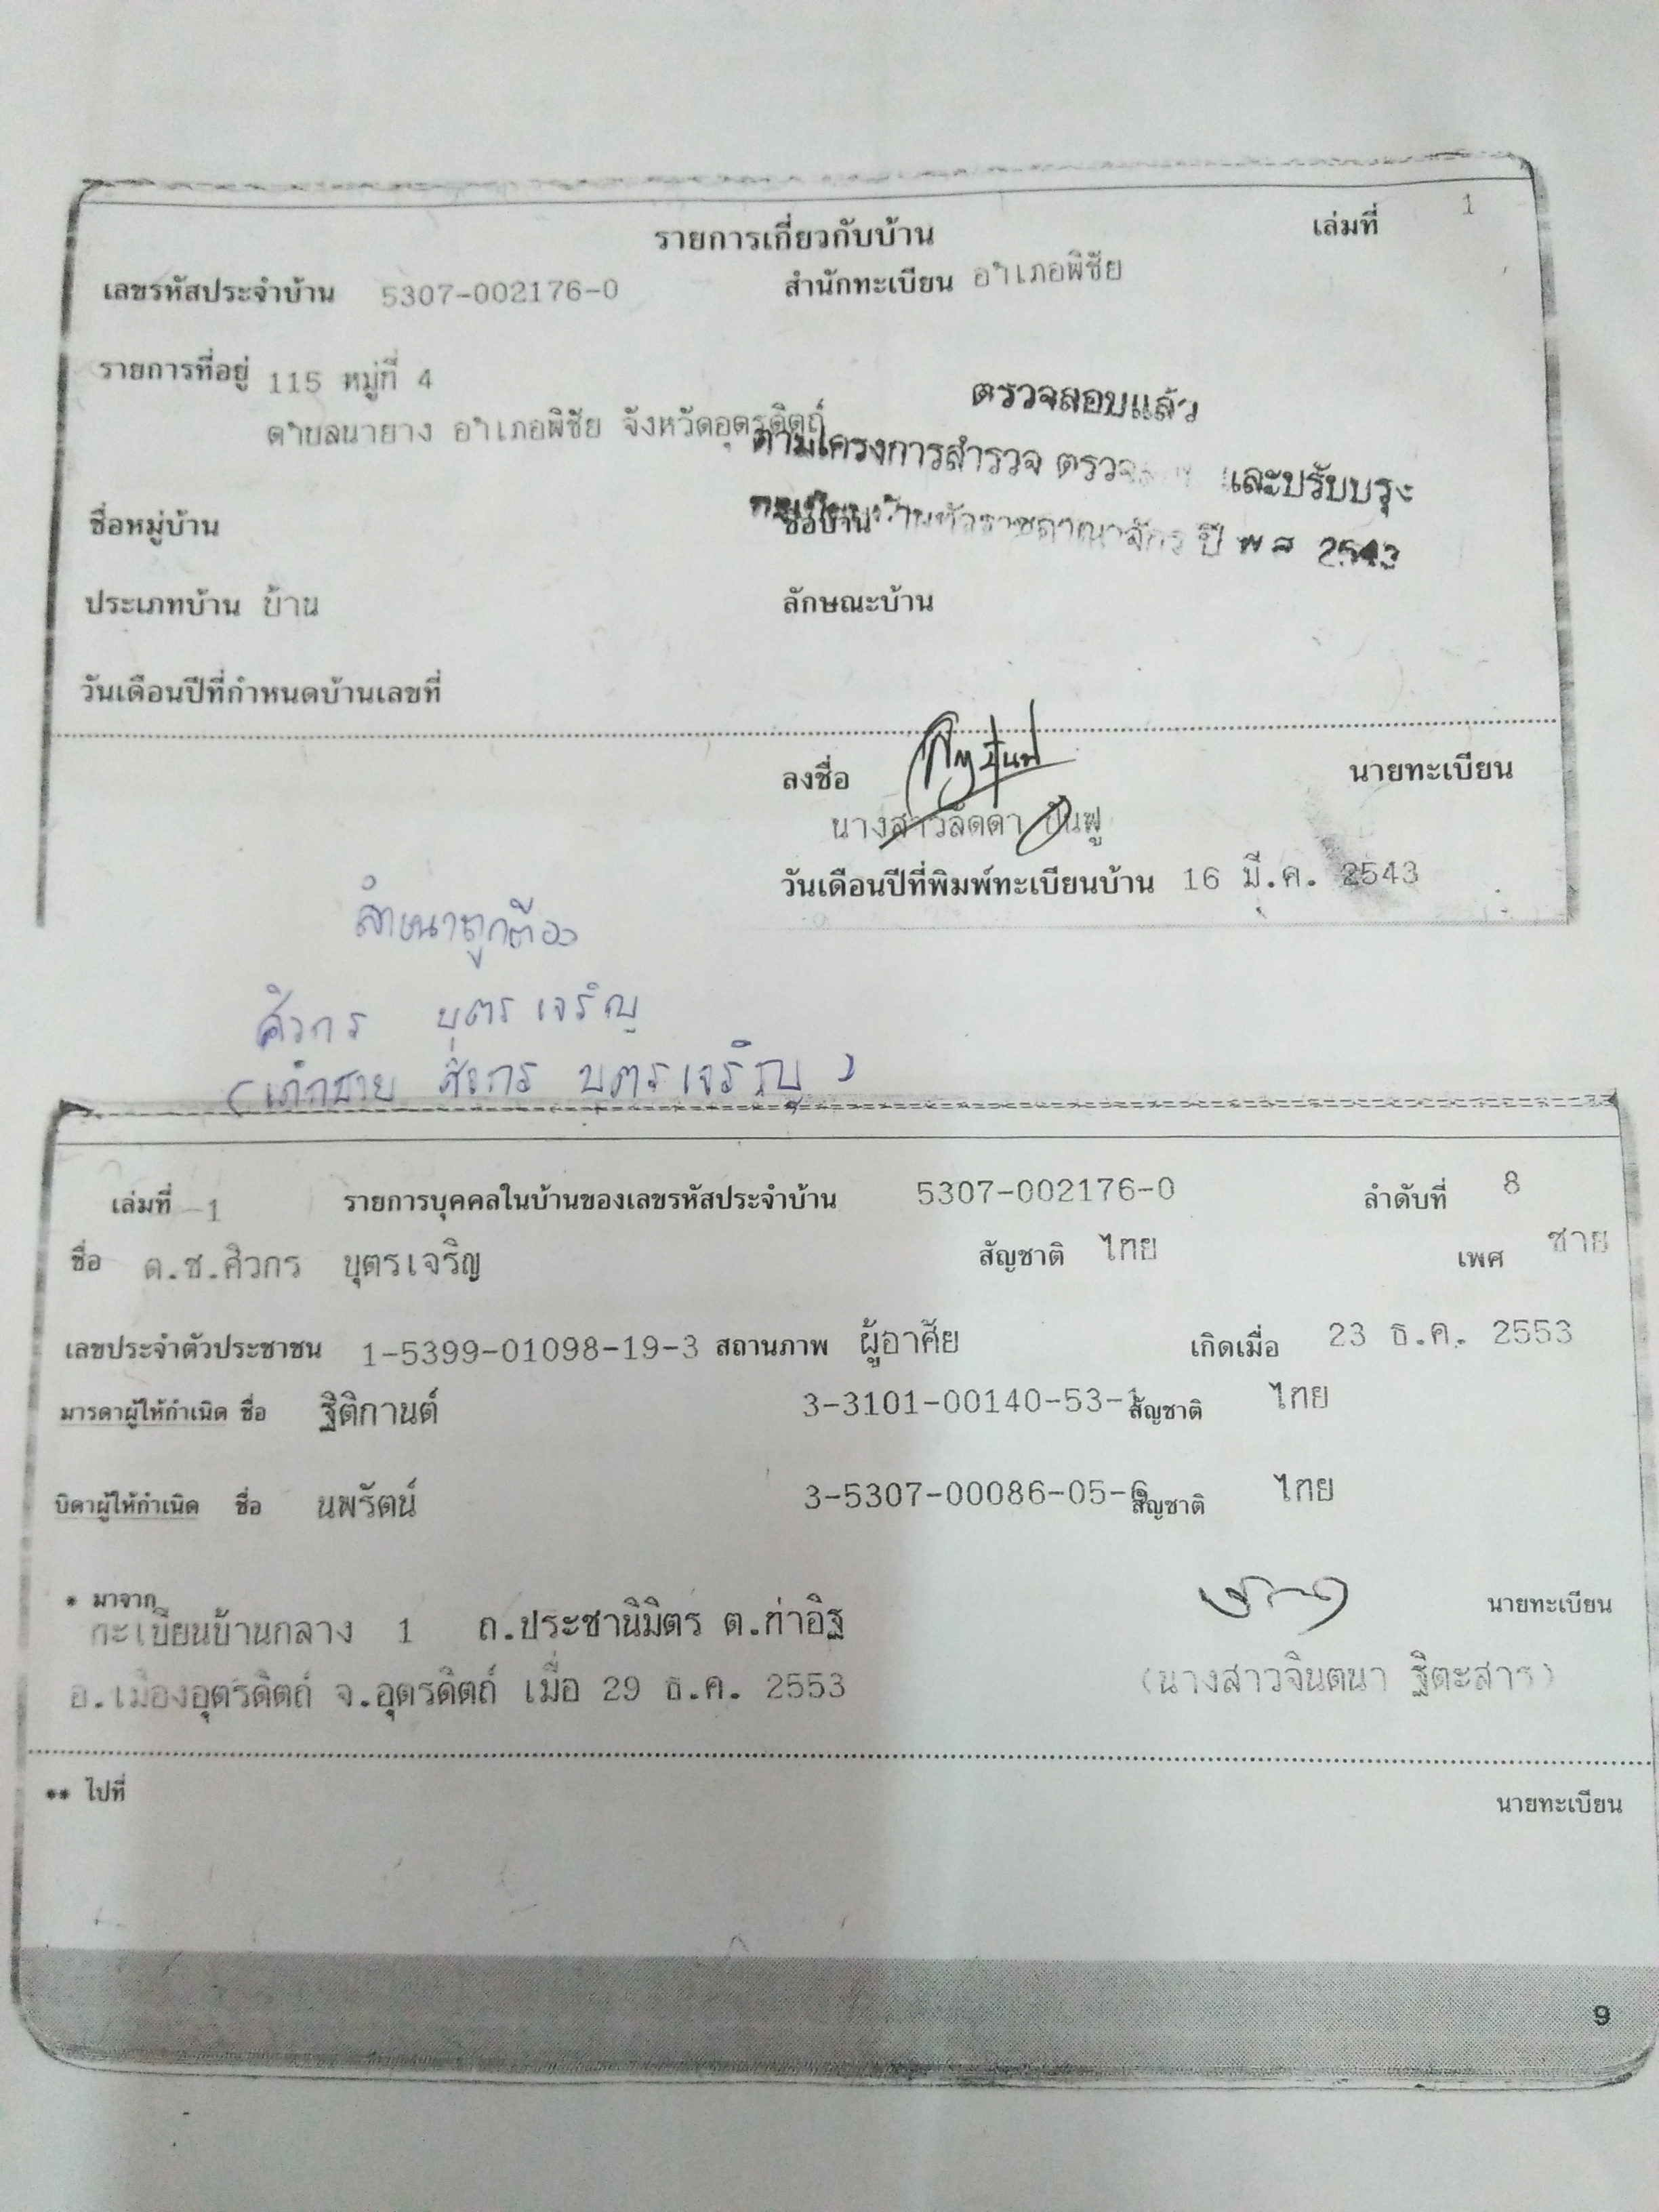 รายการเกี่ยวกับบ้าน เล่มที่ 1
เลขรหัสประจำบ้าน 5307-002176-0 สำนักทะเบียน อำเภอพิชัย
รายการที่อยู่ 115 หมู่ที่ 4
ตำบลนายาง อำเภอพิชัย จังหวัดอุตรดิตถ์
ตรวจสอบแล้ว
ตามโครงการสำรวจ ตรวจ และปรับปรุง
ทะเบียนบ้านทั่วราชอาณาจักร ปี พ ศ 2543
ชื่อหมู่บ้าน ชื่อบ้าน
ประเภทบ้าน บ้าน ลักษณะบ้าน
วันเดือนปีที่กำหนดบ้านเลขที่
ลงชื่อ นายทะเบียน
นางสาวลัดดา ปันฟู
วันเดือนปีที่พิมพ์ทะเบียนบ้าน 16 มี.ค. 2543
สำเนาถูกต้อง
ศิวกร บุตรเจริญ
(เด็กชาย ศิวกร บุตรเจริญ)
เล่มที่ 1 รายการบุคคลในบ้านของเลขรหัสประจำบ้าน 5307-002176-0 ลำดับที่ 8
ชื่อ ด.ช.ศิวกร บุตรเจริญ สัญชาติ ไทย เพศ ชาย
เลขประจำตัวประชาชน 1-5399-01098-19-3 สถานภาพ ผู้อาศัย เกิดเมื่อ 23 ธ.ค. 2553
มารดาผู้ให้กำเนิด ชื่อ ฐิติกานต์ 3-3101-00140-53-1 สัญชาติ ไทย
บิดาผู้ให้กำเนิด ชื่อ นพรัตน์ 3-5307-00086-05-6 สัญชาติ ไทย
* มาจาก นายทะเบียน
ทะเบียนบ้านกลาง 1 ถ.ประชานิมิตร ต.ท่าอิฐ
อ.เมืองอุตรดิตถ์ จ.อุตรดิตถ์ เมื่อ 29 ธ.ค. 2553 (นางสาวจินตนา ฐิตะสาร)
** ไปที่ นายทะเบียน
9